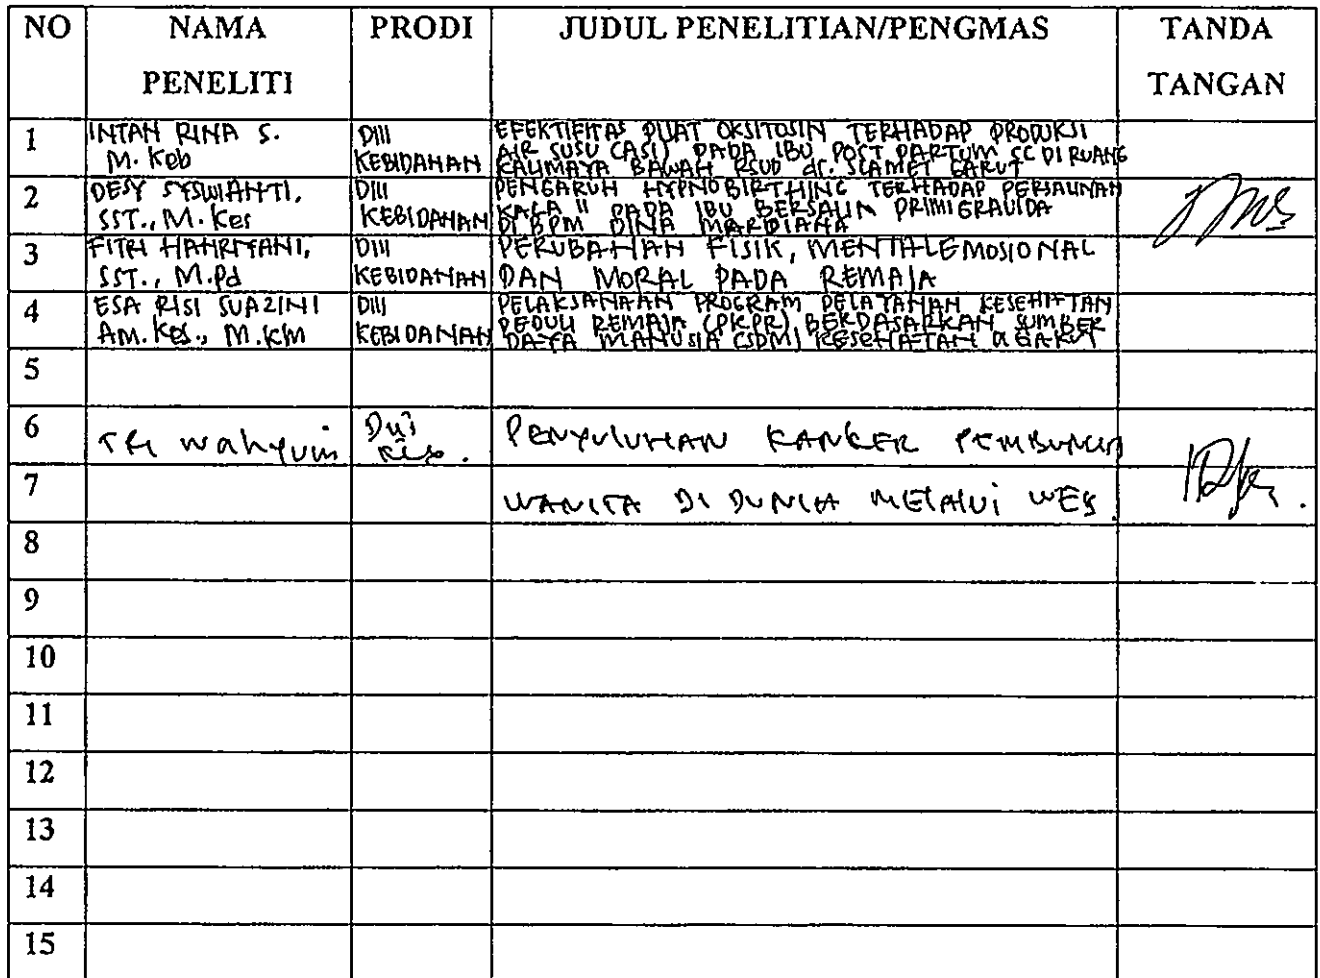 NO NAMA PENELITI PRODI JUDUL PENELITIAN/PENGMAS TANDA TANGAN
1 INTAN RINA S. M. Keb DIII KEBIDANAN EFEKTIFITAS PIJAT OKSITOSIN TERHADAP PRODUKSI
AIR SUSU (ASI) PADA IBU POST PARTUM SC DI RUANG
KALIMAYA BAWAH RSUD dr. SLAMET GARUT
2 DESY SYSWIANTI, SST., M. Kes DIII KEBIDANAN PENGARUH HYPNOBIRTHING TERHADAP PERSALINAN
KALA II PADA IBU BERSALIN PRIMIGRAVIDA
DI BPM DINA MARDIANA
3 FITRI HANRIYANI, SST., M.Pd DIII KEBIDANAN PERUBAHAN FISIK, MENTAL EMOSIONAL
DAN MORAL PADA REMAJA
4 ESA RISI SUAZINI Am. Kes., M.KM DIII KEBIDANAN PELAKSANAAN PROGRAM PELAYANAN KESEHATAN
PEDULI REMAJA (PKPR) BERDASARKAN SUMBER
DAYA MANUSIA (SDM) KESEHATAN GARUT
5
6 Tri Wahyuni PENYULUHAN KANKER PEMBUNUH
7 WANITA DI DUNIA MELALUI
8
9
10
11
12
13
14
15